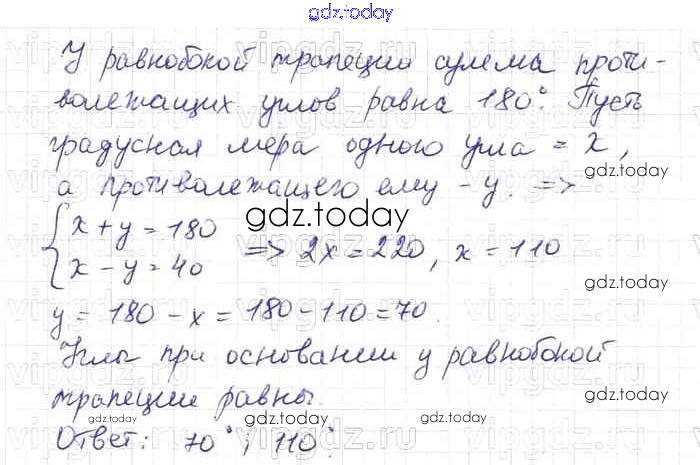 gdz.today
У равнобокой трапеции сумма проти-
волежащих углов равна 180°. Пусть
градусная мера одного угла = x,
а противолежащего ему - y. =>
{ x + y = 180
x - y = 40 => 2x = 220, x = 110
y = 180 - x = 180 - 110 = 70.
Углы при основании у равнобокой
трапеции равны.
Ответ: 70°; 110°.
gdz.today
gdz.today
gdz.today
gdz.today
gdz.today
gdz.today
gdz.today